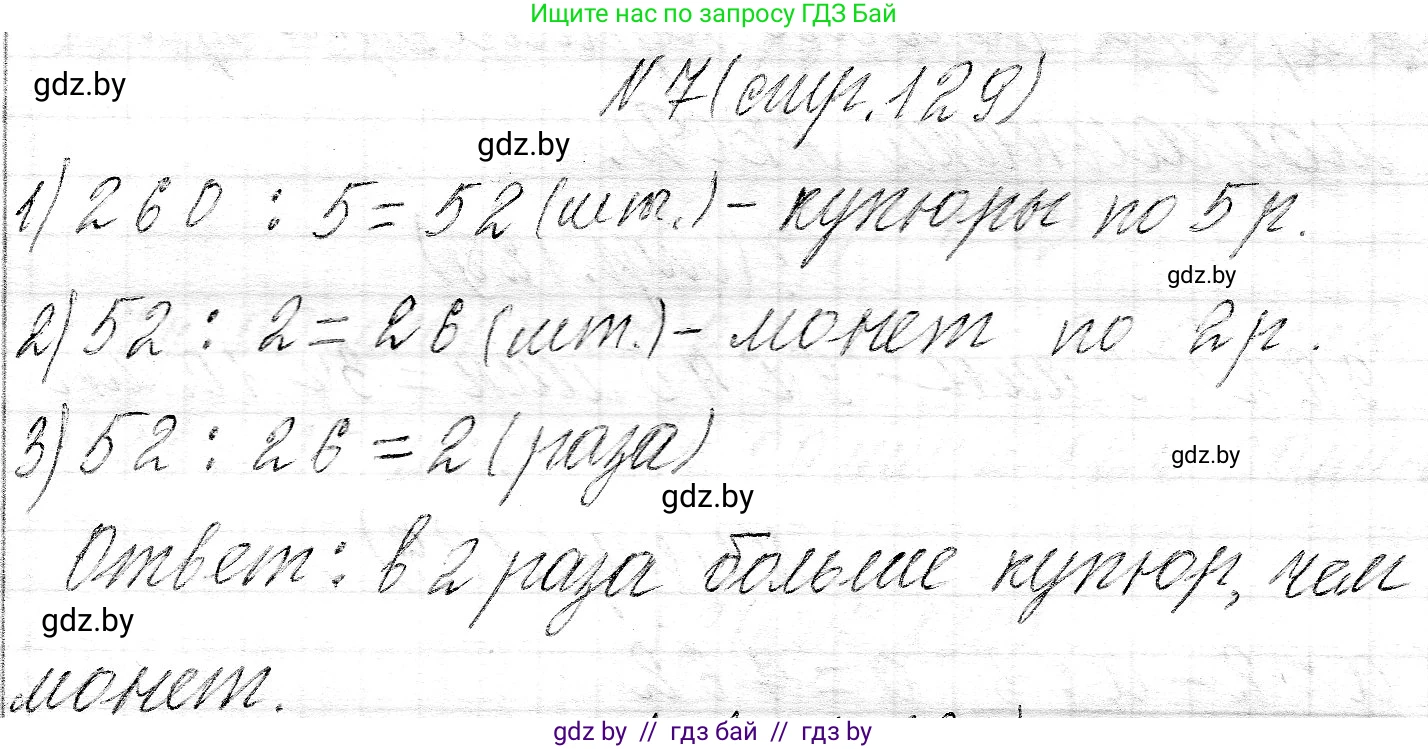 Ищите нас по запросу ГДЗ Бай
gdz.by
N 7 (стр. 129)
gdz.by
1) 260 : 5 = 52 (шт.) - купюры по 5 р.
gdz.by
2) 52 : 2 = 26 (шт.) - монет по 2 р.
3) 52 : 26 = 2 (раза)
gdz.by
gdz.by
Ответ: в 2 раза больше купюр, чем
gdz.by
монет.
gdz by // гдз бай // гдз by